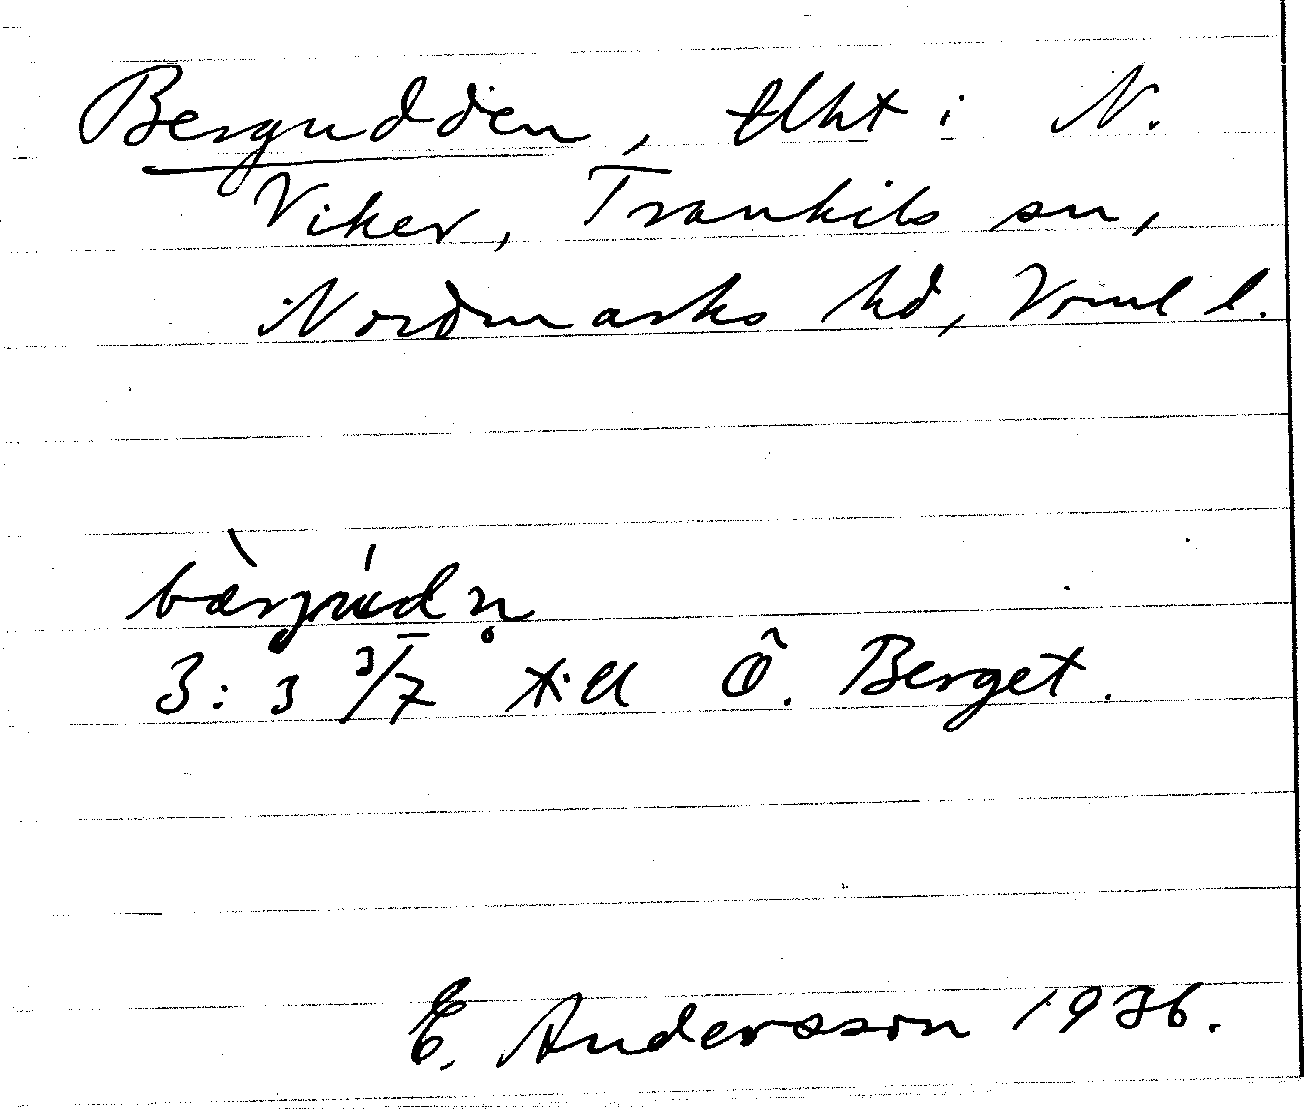 Bergudden, tlht i N.
Viker, Trankils sn,
Nordmarks hd, Vrml l.
bærjudn̥
3: 3 3/7 till Ö. Berget.
E. Andersson 1936.